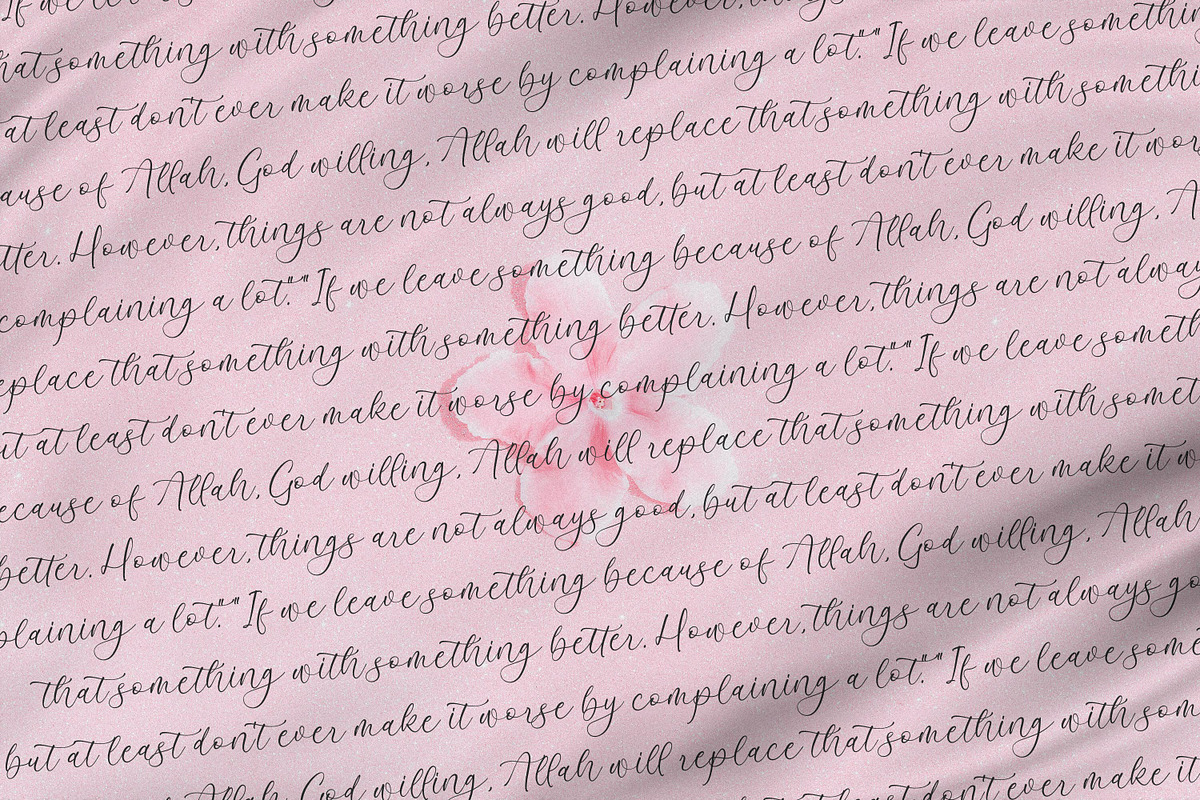 If we
hat something with something better. However, things
at least don't ever make it worse by complaining a lot.""If we leave somethi
ause of Allah, God willing, Allah will replace that something with somethi
tter. However, things are not always good, but at least don't ever make it wor
complaining a lot.""If we leave something because of Allah, God willing, A
eplace that something with something better. However, things are not alway
ut at least don't ever make it worse by complaining a lot.""If we leave someth
ecause of Allah, God willing, Allah will replace that something with somet
better. However, things are not always good, but at least don't ever make it w
plaining a lot.""If we leave something because of Allah, God willing, Allah
that something with something better. However, things are not always go
but at least don't ever make it worse by complaining a lot.""If we leave some
Allah, God willing, Allah will replace that something with som
at least don't ever make it